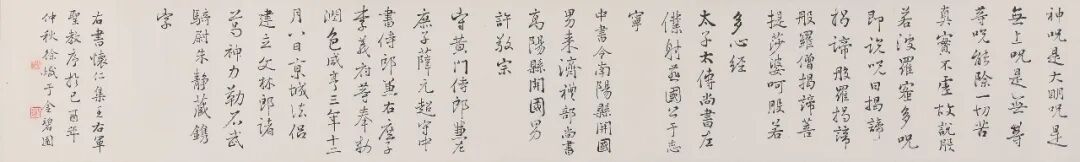 神咒是大明咒是
無上咒是無等
等咒能除一切苦
真實不虛故說般
若波羅蜜多咒
即說咒曰揭諦
揭諦般羅揭諦
般羅僧揭諦菩
提莎婆呵般若
多心經
太子太傅尚書左
僕射燕國公于志
寧
中書令南陽縣開國
男來濟禮部尚書
高陽縣開國男
許敬宗
守黃門侍郎兼左
庶子薛元超守中
書侍郎兼右庶子
李義府等奉勅
潤色咸亨三年十二
月八日京城法侶
建立文林郎諸
葛神力勒石武
騎尉朱靜藏鐫
字
右書懷仁集王右軍
聖教序於己酉年
仲秋徐于金碧園